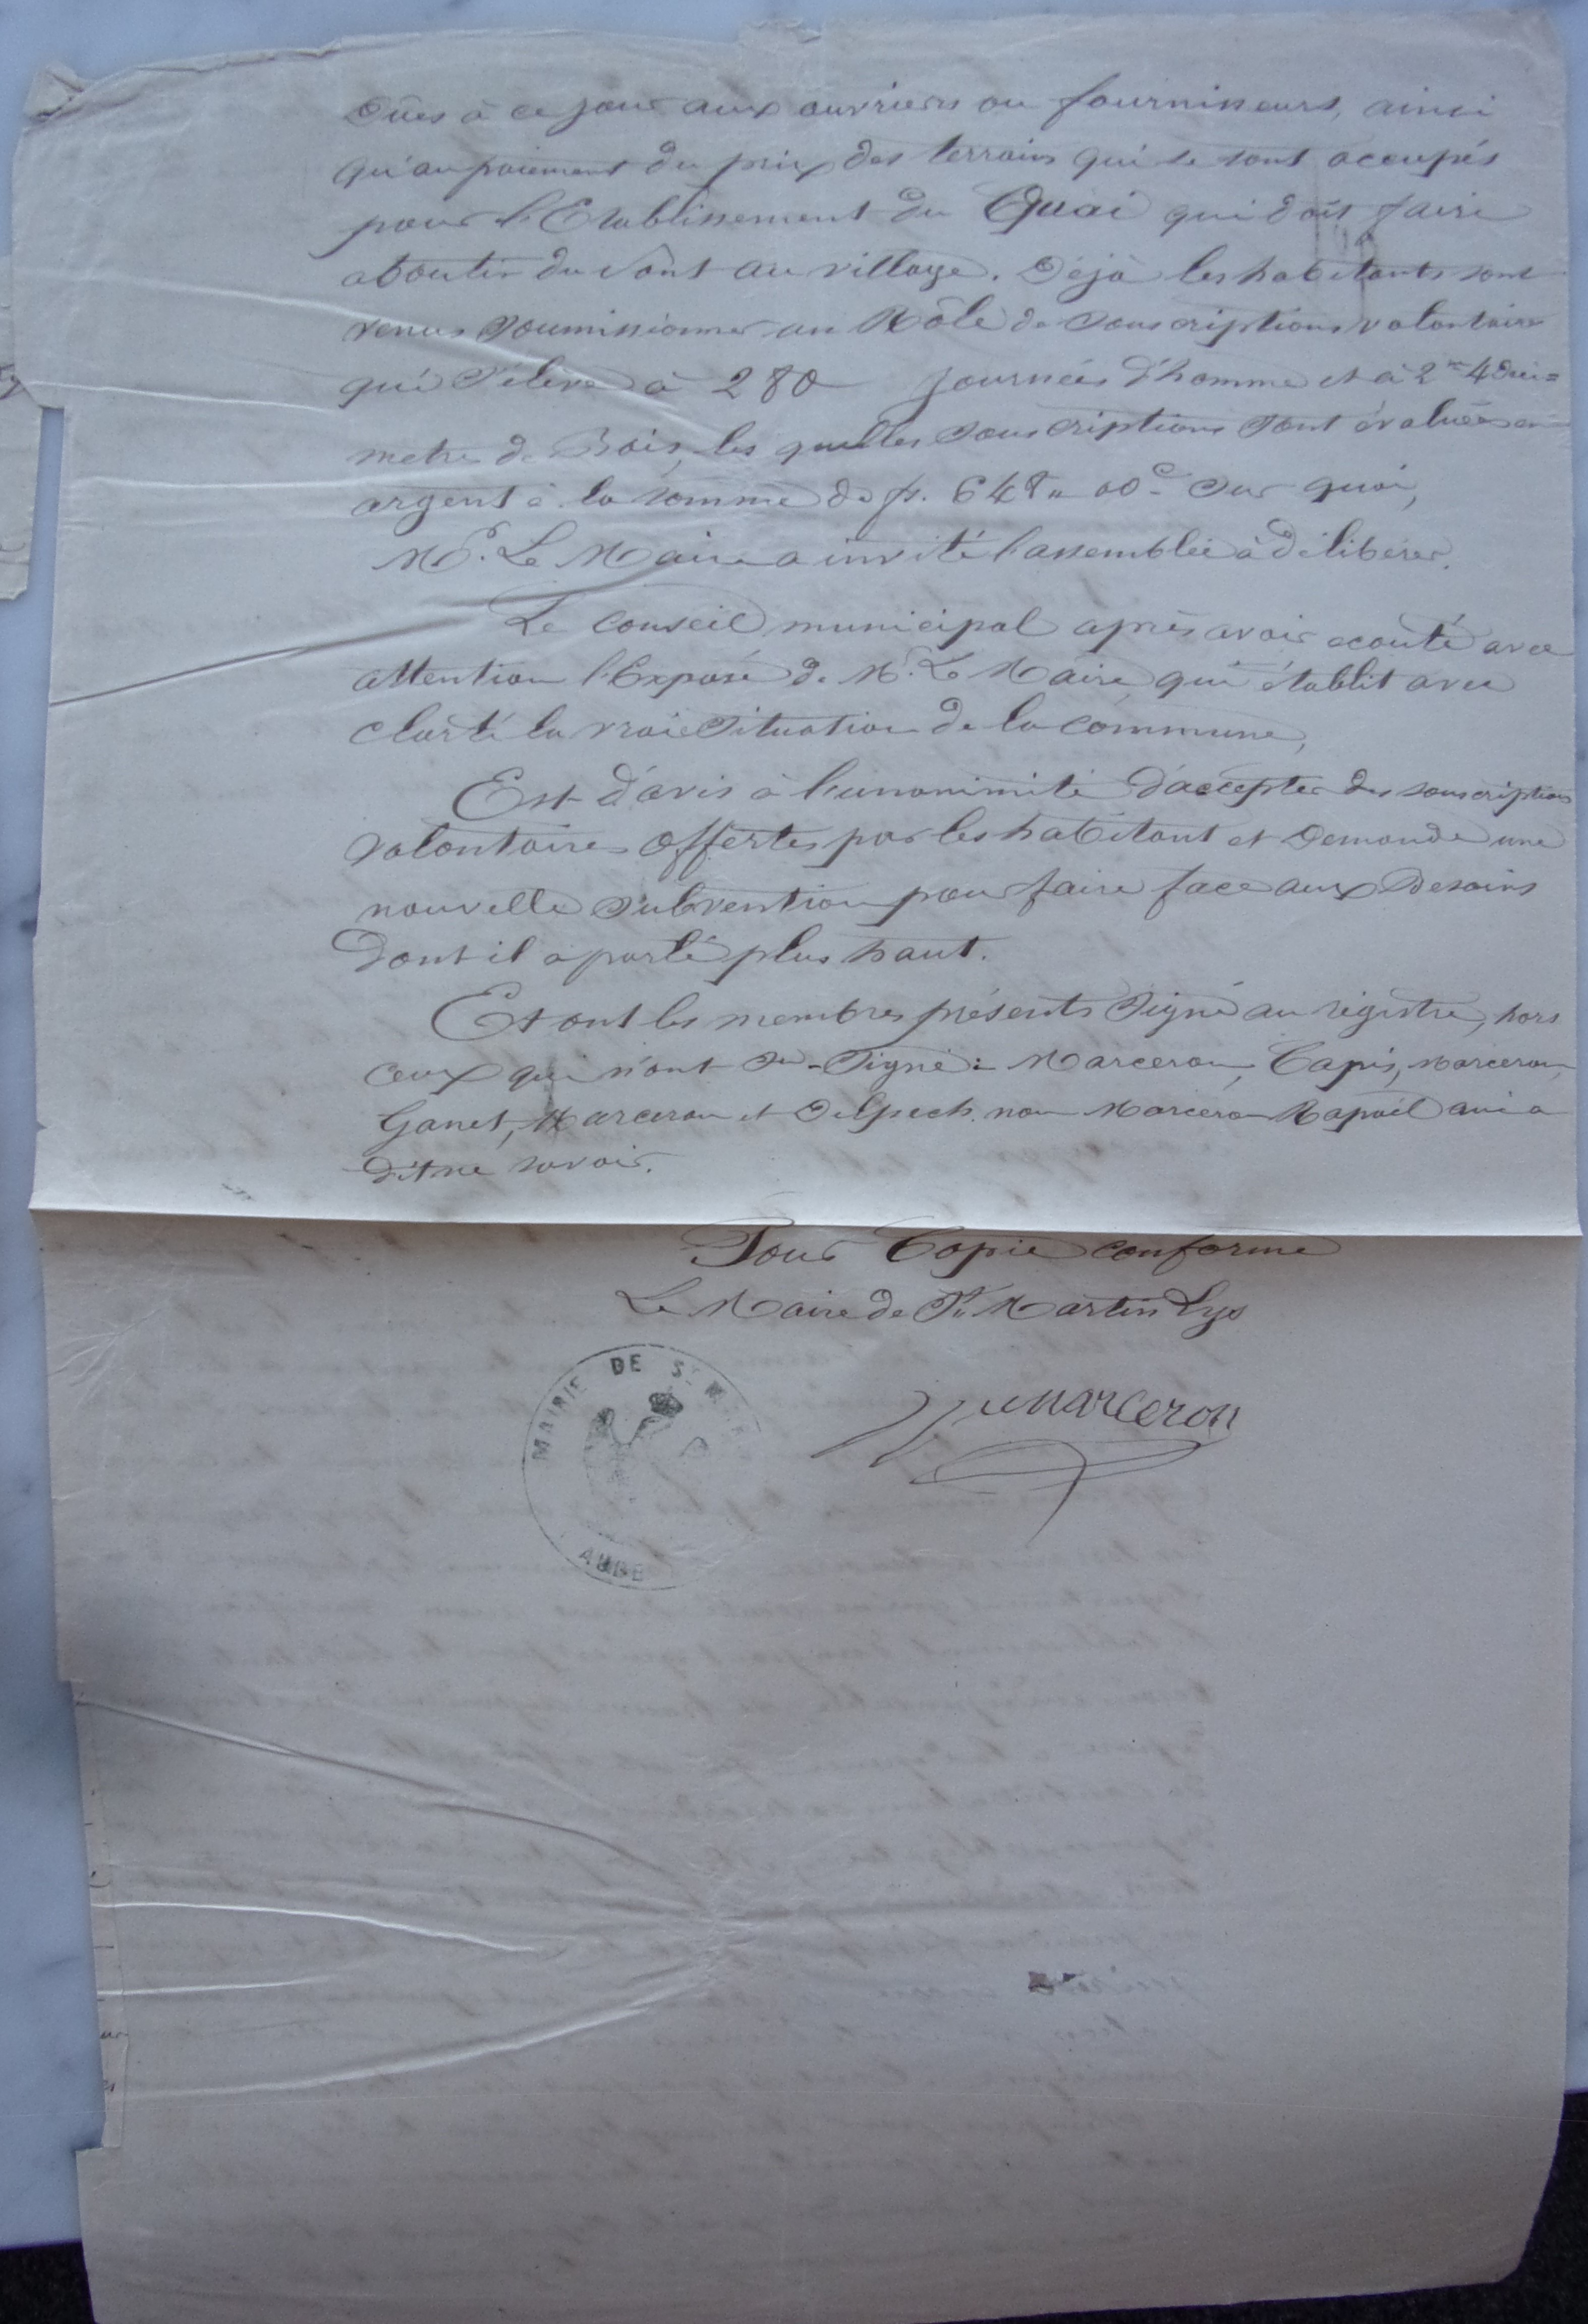 Dûes à ce jour aux ouvriers ou fournisseurs, ainsi
qu'au paiement du prix des terrains qui se sont occupés
pour l'Etablissement du Quai qui doit faire
aboutir du Pont au village. Déjà les habitants sont
venus soumissionner un Rôle de souscriptions volontaires
qui s'élève à 280 journées d'homme et à 2m 4 déci=
metre de Bois, les quelles souscriptions sont évaluées en
argent à la somme de fr. 648 " 00c. Sur quoi,
Mr. Le Maire a invité l'assemblée à délibérer.
Le conseil municipal après avoir ecouté avec
attention l'Exposé de Mr. Le Maire, qui établit avec
clarté la vraie Situation de la commune,
Est d'avis à l'unanimité d'accepter des souscriptions
volontaires offertes par les habitant et demande une
nouvelle subvention pour faire face aux besoins
dont il a parlé plus haut.
Et ont les membres présents signé au régistre, hors
ceux qui n'ont su. Signé : Marceron, Capis, Marceron,
Ganet, Marceron et Delpech. non Marceron Rapaël qui a
dit ne savoir.
Pour Copie conforme
Le Maire de St. Martin Lys
Marceron
MAIRIE DE ST. M
AUDE